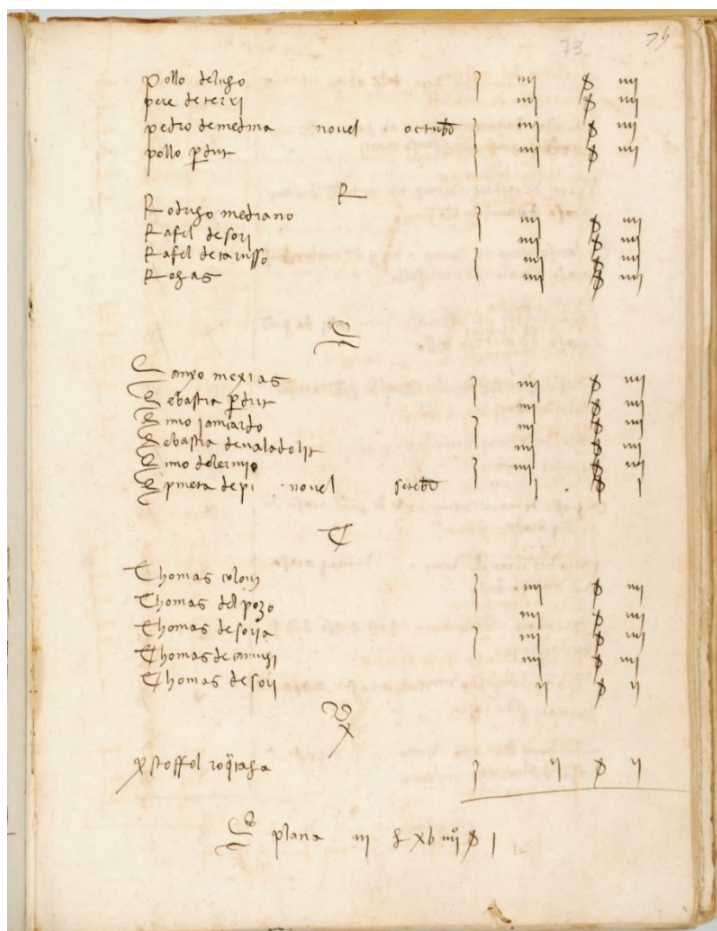 73 75
pollo delugo } iiij ȣ iiij
pere de terxi iiij ȣ iiij
pedro demedina novel octubr̄ } iiij ȣ iiij
pollo ꝑdut iiij ȣ iiij
R
Rodrigo mediano } iiij ȣ iiij
Rafel desori iiij ȣ iiij
Rafel de } iiij ȣ iiij
Rojas iiij ȣ iiij
S
Sanxo mexias } iiij ȣ iiij
Sebastia ꝑdut iiij ȣ iiij
Simo } iiij ȣ iiij
Sebastia devaladolit iiij ȣ iiij
Simo } iiij ȣ iiij
depi novel setebr̄ j ȣ j
T
Thomas colom } iiij ȣ iiij
Thomas del pozo iiij ȣ iiij
Thomas desoria } iiij ȣ iiij
Thomas de iiij ȣ iiij
Thomas desori ij ȣ ij
X
xp̄stoffol } ij ȣ ij
Sᵃ plana iij xb iiijº ȣ j